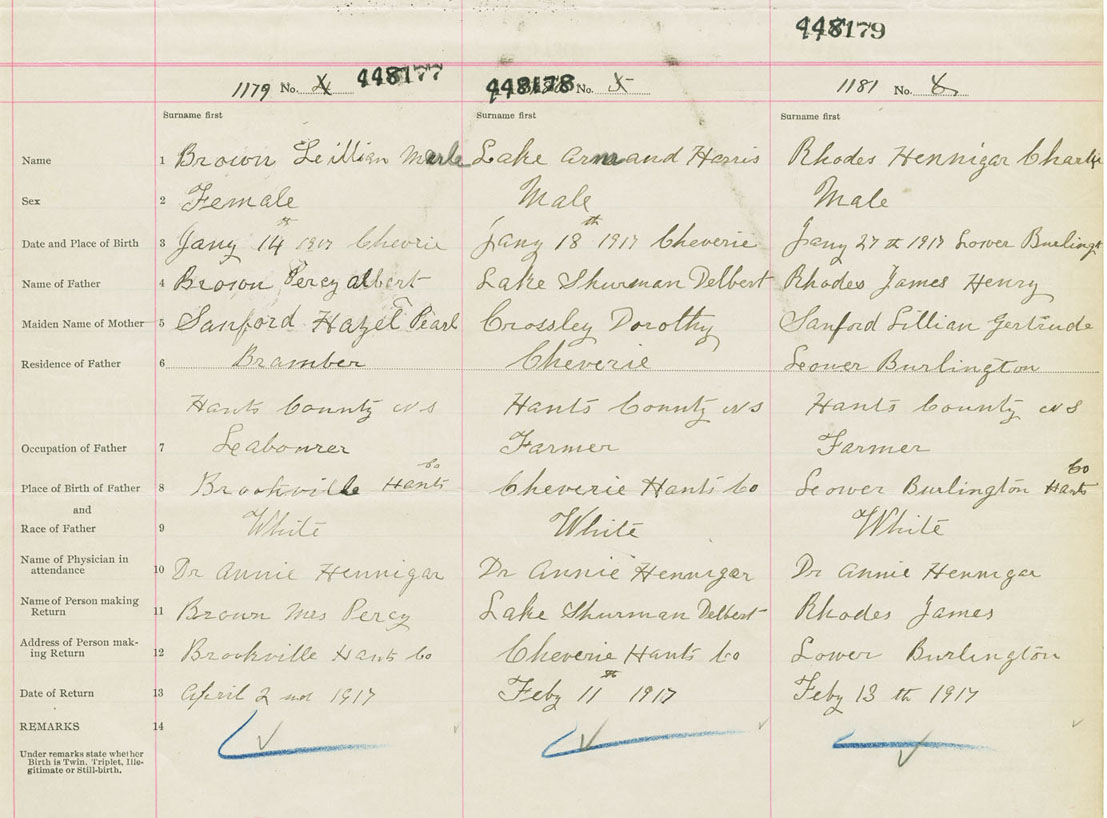 448179
1179 No. 4 448177 448178 No. 5 1181 No. 6
Surname first Surname first Surname first
Name 1 Brown Leillian Merle Lake Armand Harris Rhodes Hennigar Charlie
Sex 2 Female Male Male
Date and Place of Birth 3 Jany 14th 1917 Cheverie Jany 18th 1917 Cheverie Jany 27th 1917 Lower Burlingt
Name of Father 4 Brown Percy albert Lake Shurman Delbert Rhodes James Henry
Maiden Name of Mother 5 Sanford Hazel Pearl Crossley Dorothy Sanford Lillian Gertrude
Residence of Father 6 Bramber Cheverie Lower Burlington
Hants County NS Hants County NS Hants County NS
Occupation of Father 7 Leabourer Farmer Farmer
Place of Birth of Father 8 Brookville Hants Co Cheverie Hants Co Lower Burlington Hants Co
and
Race of Father 9 White White White
Name of Physician in
attendance 10 Dr Annie Hennigar Dr Annie Hennigar Dr Annie Hennigar
Name of Person making
Return 11 Brown Mrs Percy Lake Shurman Delbert Rhodes James
Address of Person mak-
ing Return 12 Brookville Hants Co Cheverie Hants Co Lower Burlington
Date of Return 13 April 2nd 1917 Feby 11th 1917 Feby 13th 1917
REMARKS 14
Under remarks state whether
Birth is Twin, Triplet, Ille-
gitimate or Still-birth.